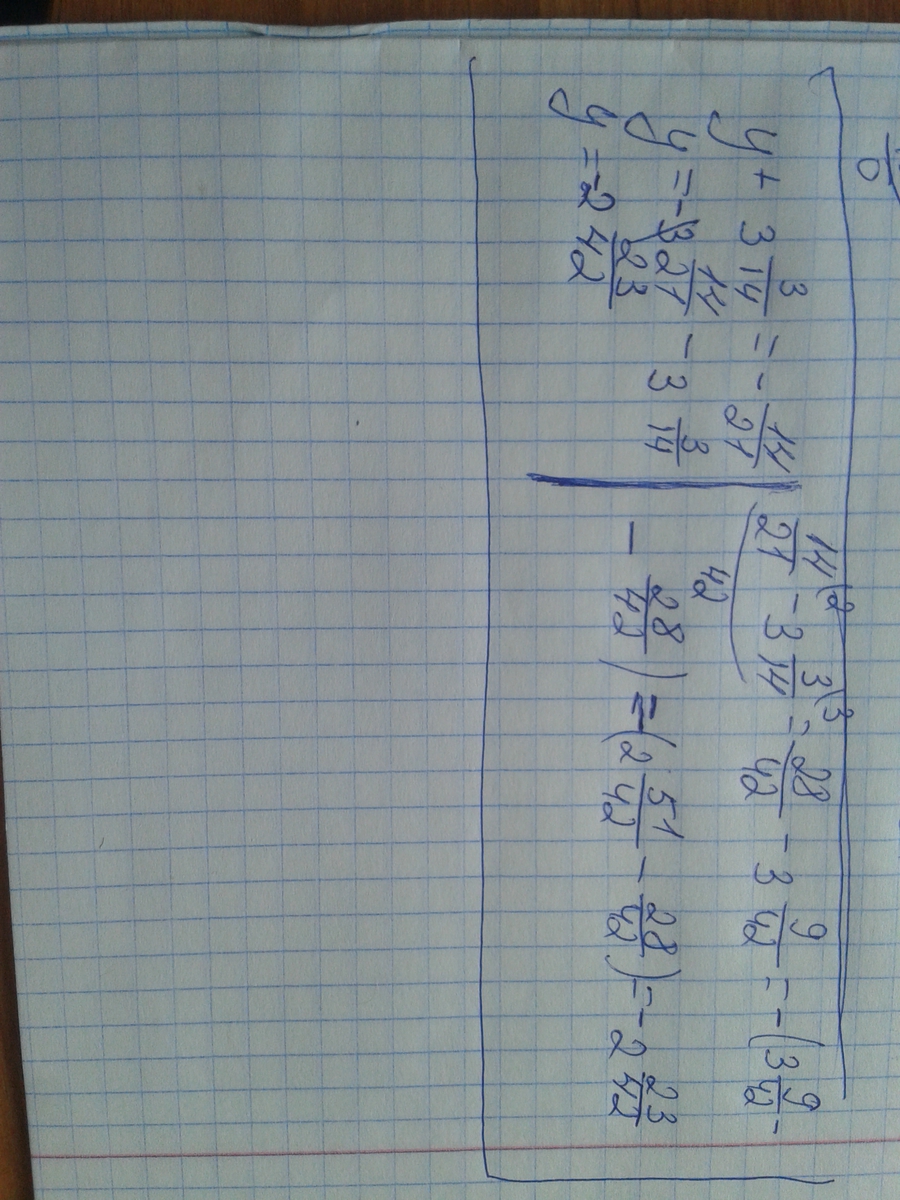 y + 3 3/14 = - 14/21
y = - 14/21 - 3 3/14
y = -2 23/42
14/21 (2 - 3 3/14 (3 = 28/42 - 3 9/42 = - (3 9/42 -
42
- 28/42) = -(2 51/42 - 28/42) = -2 23/42